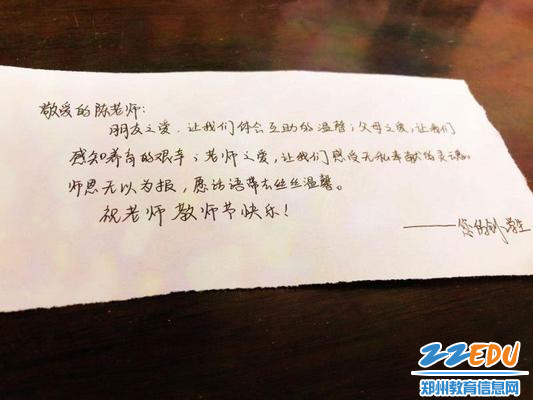 敬爱的陈老师:
朋友之爱,让我们体会互助的温馨;父母之爱,让我们
感知养育的艰辛;老师之爱,让我们感受无私奉献的灵魂。
师恩无以为报,愿话语带去丝丝温馨。
祝老师教师节快乐!
——您的学生
ZZEDU
郑州教育信息网